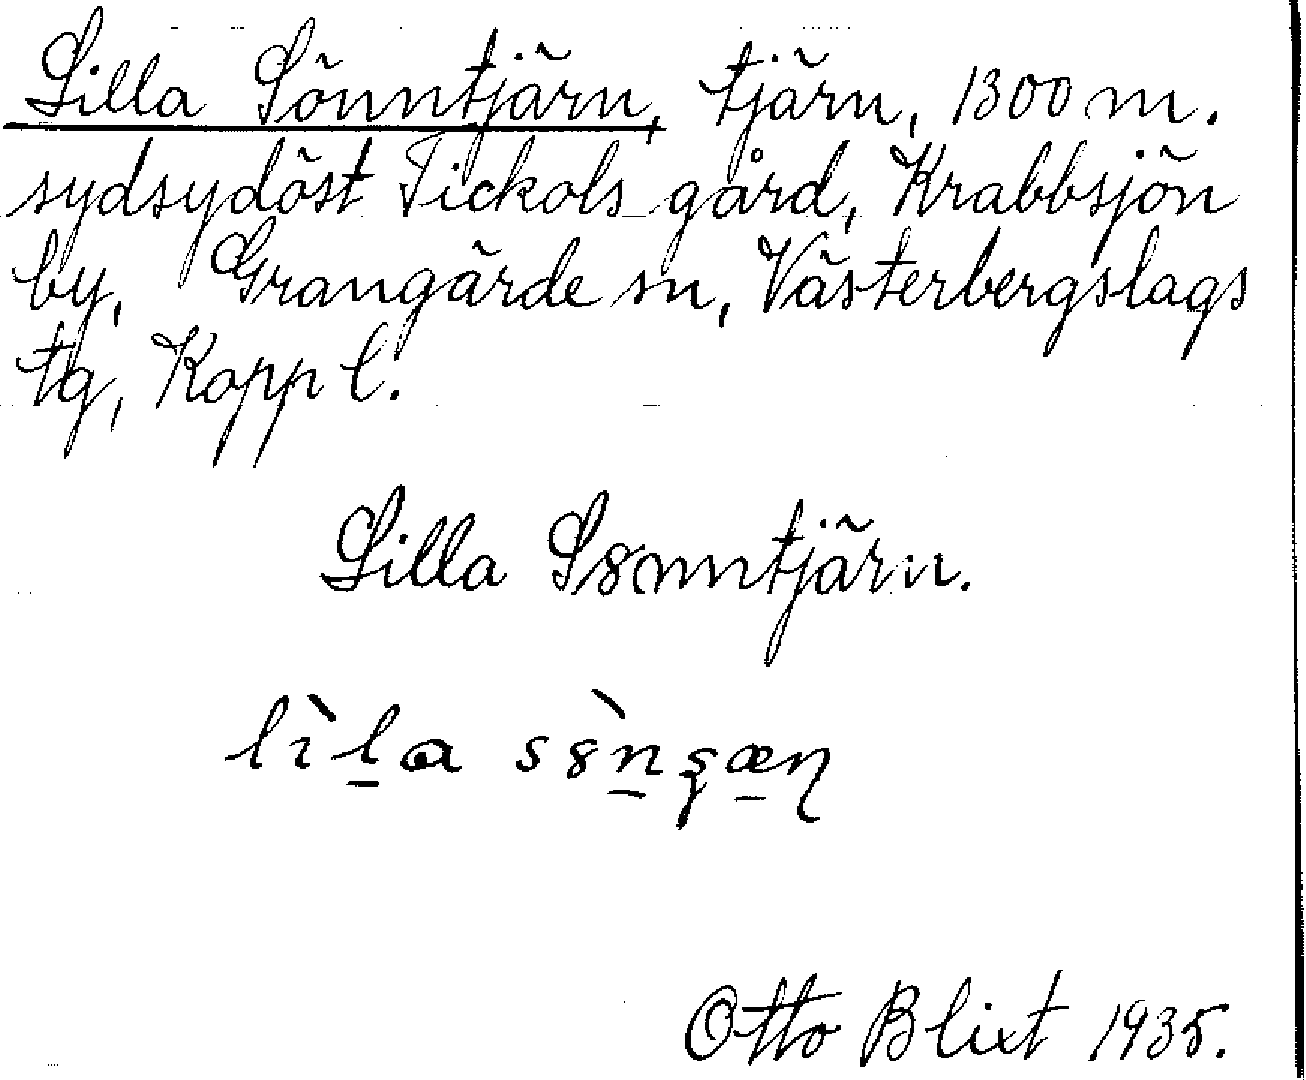 Lilla Sönntjärn, tjärn, 1300 m.
sydsydöst Tickols gård, Krabbsjön
by, Grangärde sn, Västerbergslags
tg, Kopp l.
Lilla S8nntjärn.
lìl̲a s8̀n̲ʂæ̲ɳ
Otto Blixt 1935.